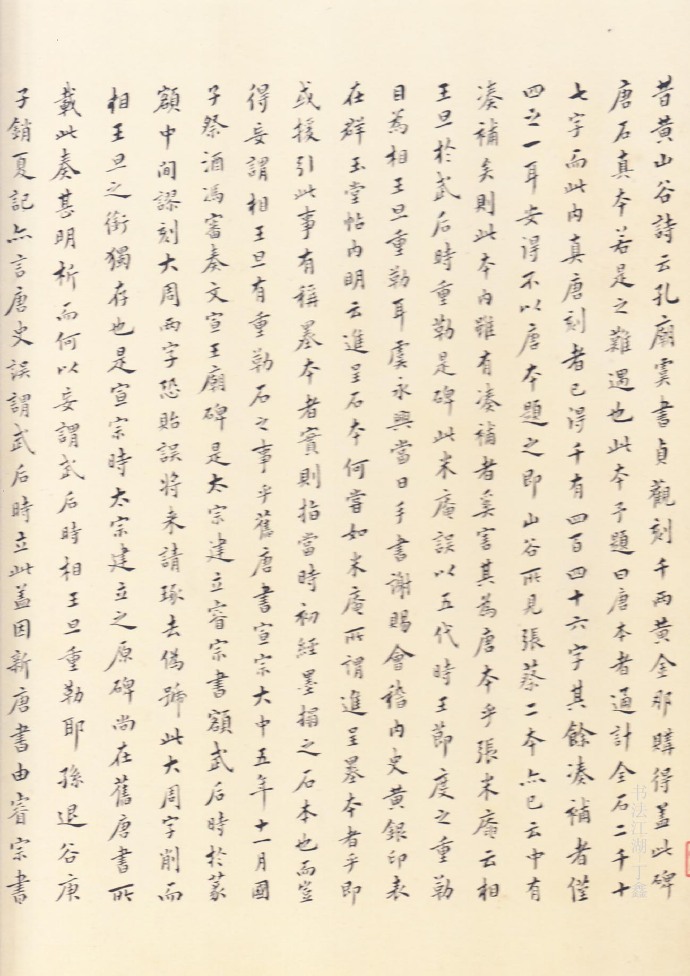 昔黄山谷詩云孔廟虞書貞觀刻千兩黄金那購得蓋此碑
唐石真本若是之難遇也此本予題曰唐本者通計全石二千十
七字而此内真唐刻者已得千有四百四十六字其餘湊補者僅
四之一耳安得不以唐本題之即山谷所見張蔡二本亦已云中有
湊補矣則此本内雖有湊補者奚害其為唐本乎張米庵云相
王旦於武后時重勒是碑此米庵誤以五代時王節度之重勒
目為相王旦重勒耳虞永興當日手書謝賜會稽内史黄銀印表
在群玉堂帖内明云進呈石本何嘗如米庵所謂進呈墨本者乎即
或援引此事有稱墨本者實則指當時初經墨搨之石本也而豈
得妄謂相王旦有重勒石之事乎舊唐書宣宗大中五年十一月國
子祭酒馮審奏文宣王廟碑是太宗建立睿宗書額武后時於篆
額中间謬刻大周兩字恐貽誤將来請琢去偽號此大周字削而
相王旦之銜獨存也是宣宗時太宗建立之原碑尚在舊唐書所
載此奏甚明析而何以妄謂武后時相王旦重勒耶 孫退谷庚
子銷夏記亦言唐史誤謂武后時立此蓋因新唐書由睿宗書
书法江湖 丁鑫